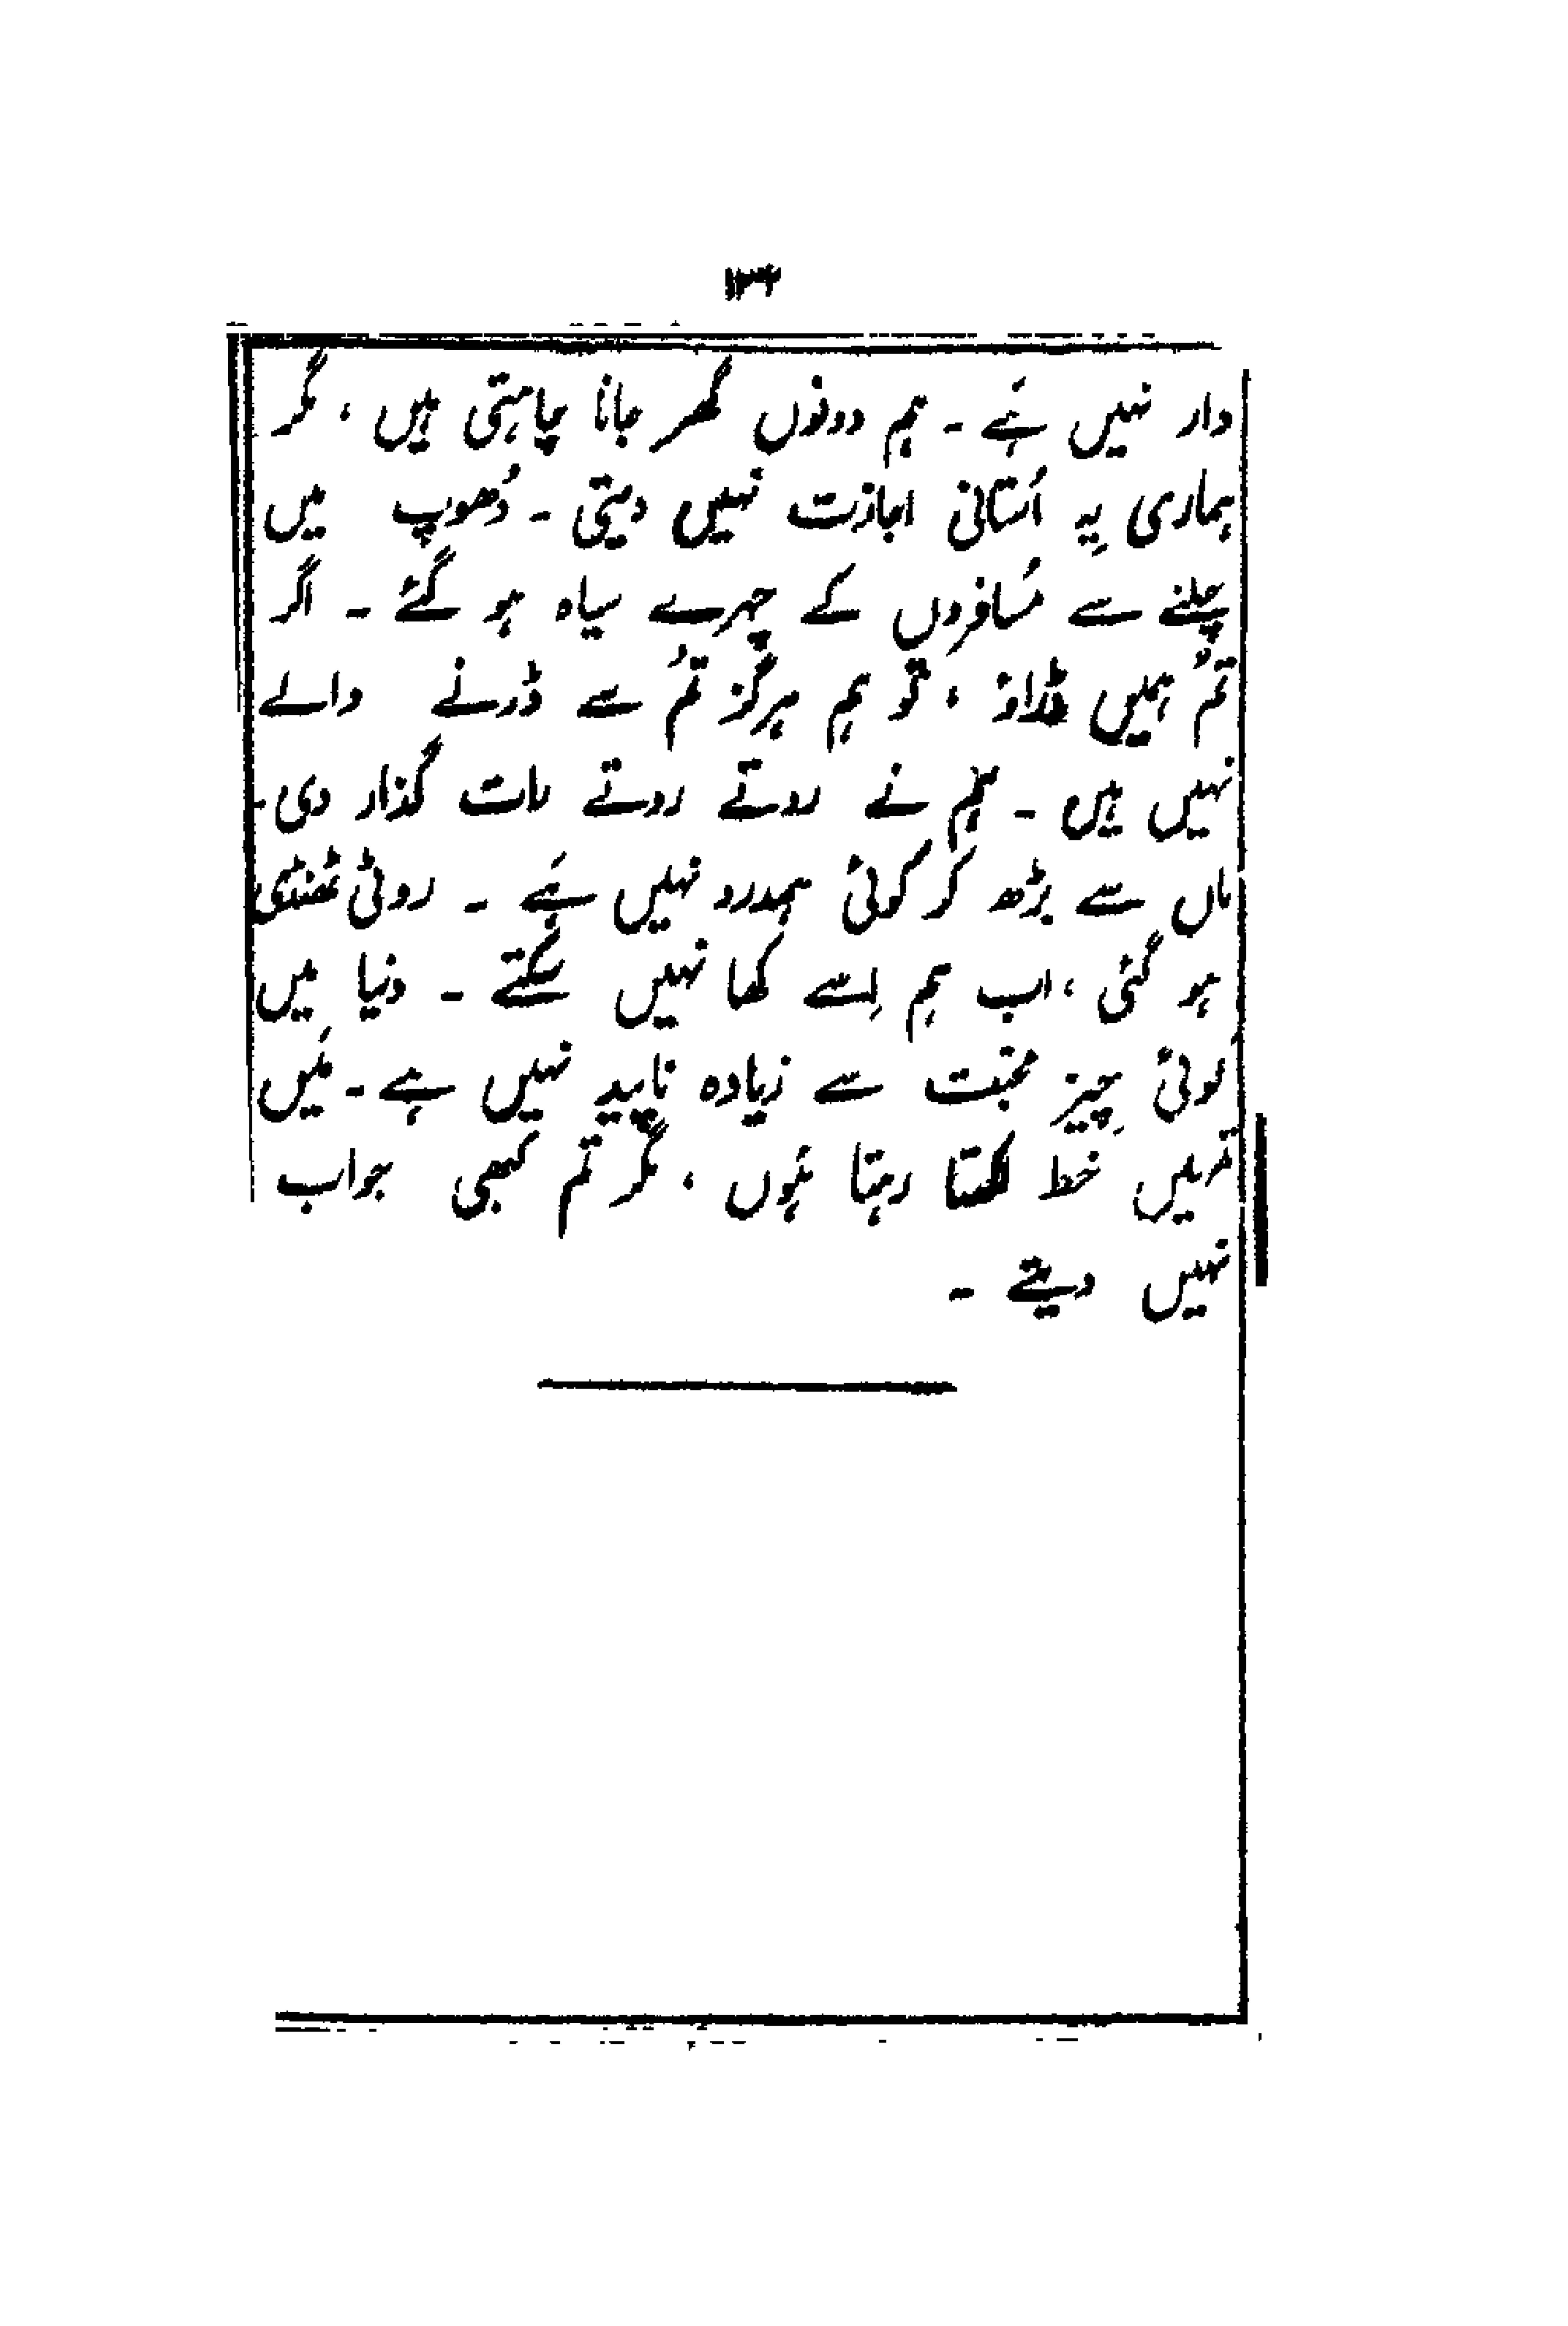 ۱۳۴
دار نہیں ہَے ۔ ہم دونوں گھر جانا چاہتی ہیں ، مگر
ہماری یِہ اُستانی اجازت نہیں دیتی ۔ دُھوپ میں
چلنے سے مُسافروں کے چہرے سیاہ ہو گئے ۔ اگر
تُم ہمیں ڈراؤ ، تو ہم ہرگز تُم سے ڈرنے والے
نہیں ہیں ۔ ہم نے روتے روتے رات گذار دی ۔
ماں سے بڑھ کر کوئی ہمدرد نہیں ہَے ۔ روٹی ٹھنڈی
ہو گئی ، اب ہم اِسے کھا نہیں سکتے ۔ دنیا میں
کوئی چِیز محبّت سے زیادہ ناپید نہیں ہے ۔ مَیں
تمہیں خط لکھتا رہتا ہُوں ، مگر تم کبھی جواب
نہیں دیتے ۔